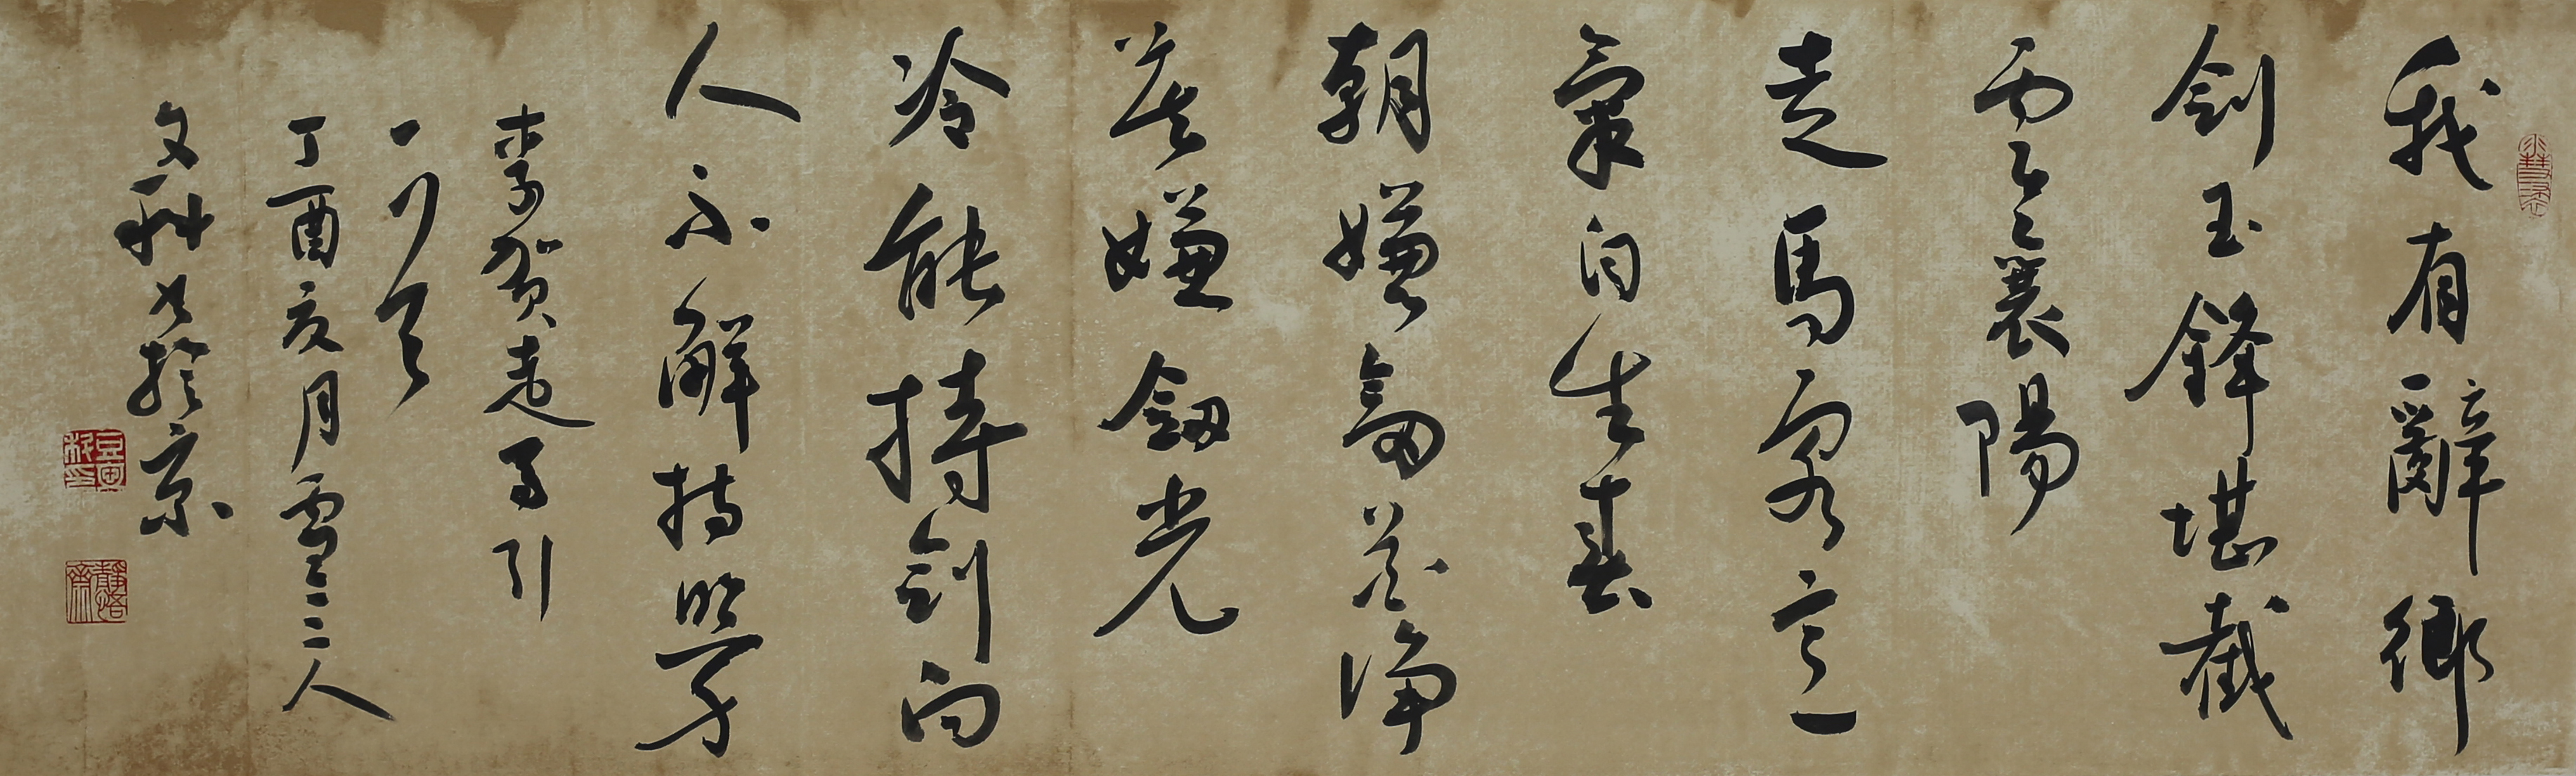 我有辭鄉
劍玉鋒堪截
雲襄陽
走馬客意
氣自生春
朝嫌劍花淨
暮嫌劍光
冷能持劍向
人不解持照身
李賀走馬引
一
丁酉亥月雪人
文科書於京
靜悟齋